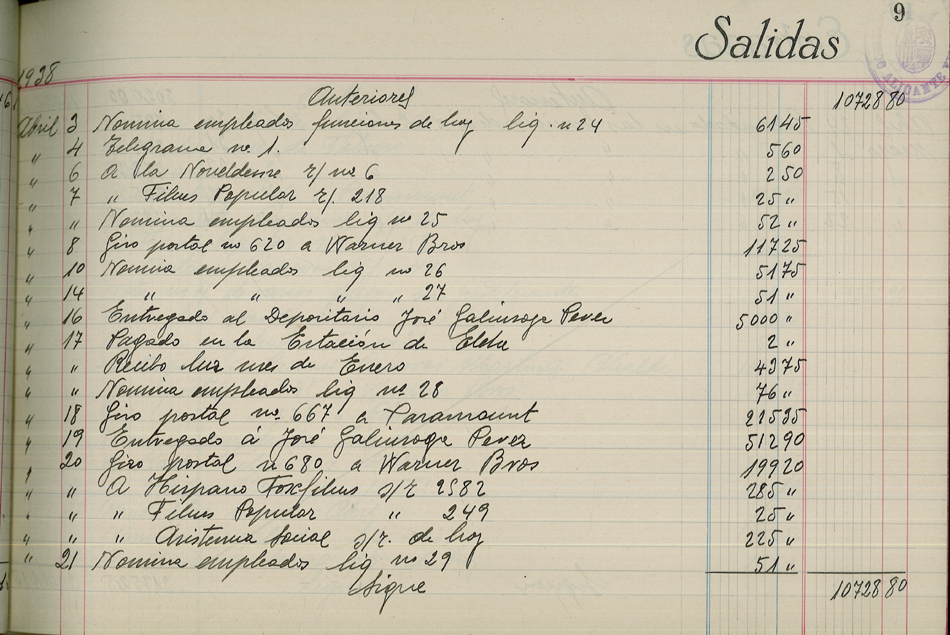 9
Salidas
1938
Anteriores 10728 80
Abril 3 Nomina empleados funciones de hoy liq. nº 24 61 45
" 4 Telegrama nº 1. 5 60
" 6 A la Noveldense r/ nº 6 2 50
" 7 " Films Popular r/. 218 25 "
" " Nomina empleados liq nº 25 52 "
" 8 Giro postal nº 620 a Warner Bros 117 25
" 10 Nomina empleados liq nº 26 51 75
" 14 " " " " 27 51 "
" 16 Entregado al Depositario José Galinsoga Pever 5000 "
" 17 Pagado en la Estación de Elda 2 "
" " Recibo luz mes de Enero 43 75
" " Nomina empleados liq nº 28 76 "
" 18 Giro postal nº 667 a Paramount 215 35
" 19 Entregado á José Galinsoga Pever 512 90
" 20 Giro postal nº 680 a Warner Bros 199 20
" " A Hispano Foxfilms s/r 2582 285 "
" " " Films Popular " 249 25 "
" " " Asistencia Social s/r. de hoy 225 "
" 21 Nomina empleados liq nº 29 51 "
Sigue 10728 80